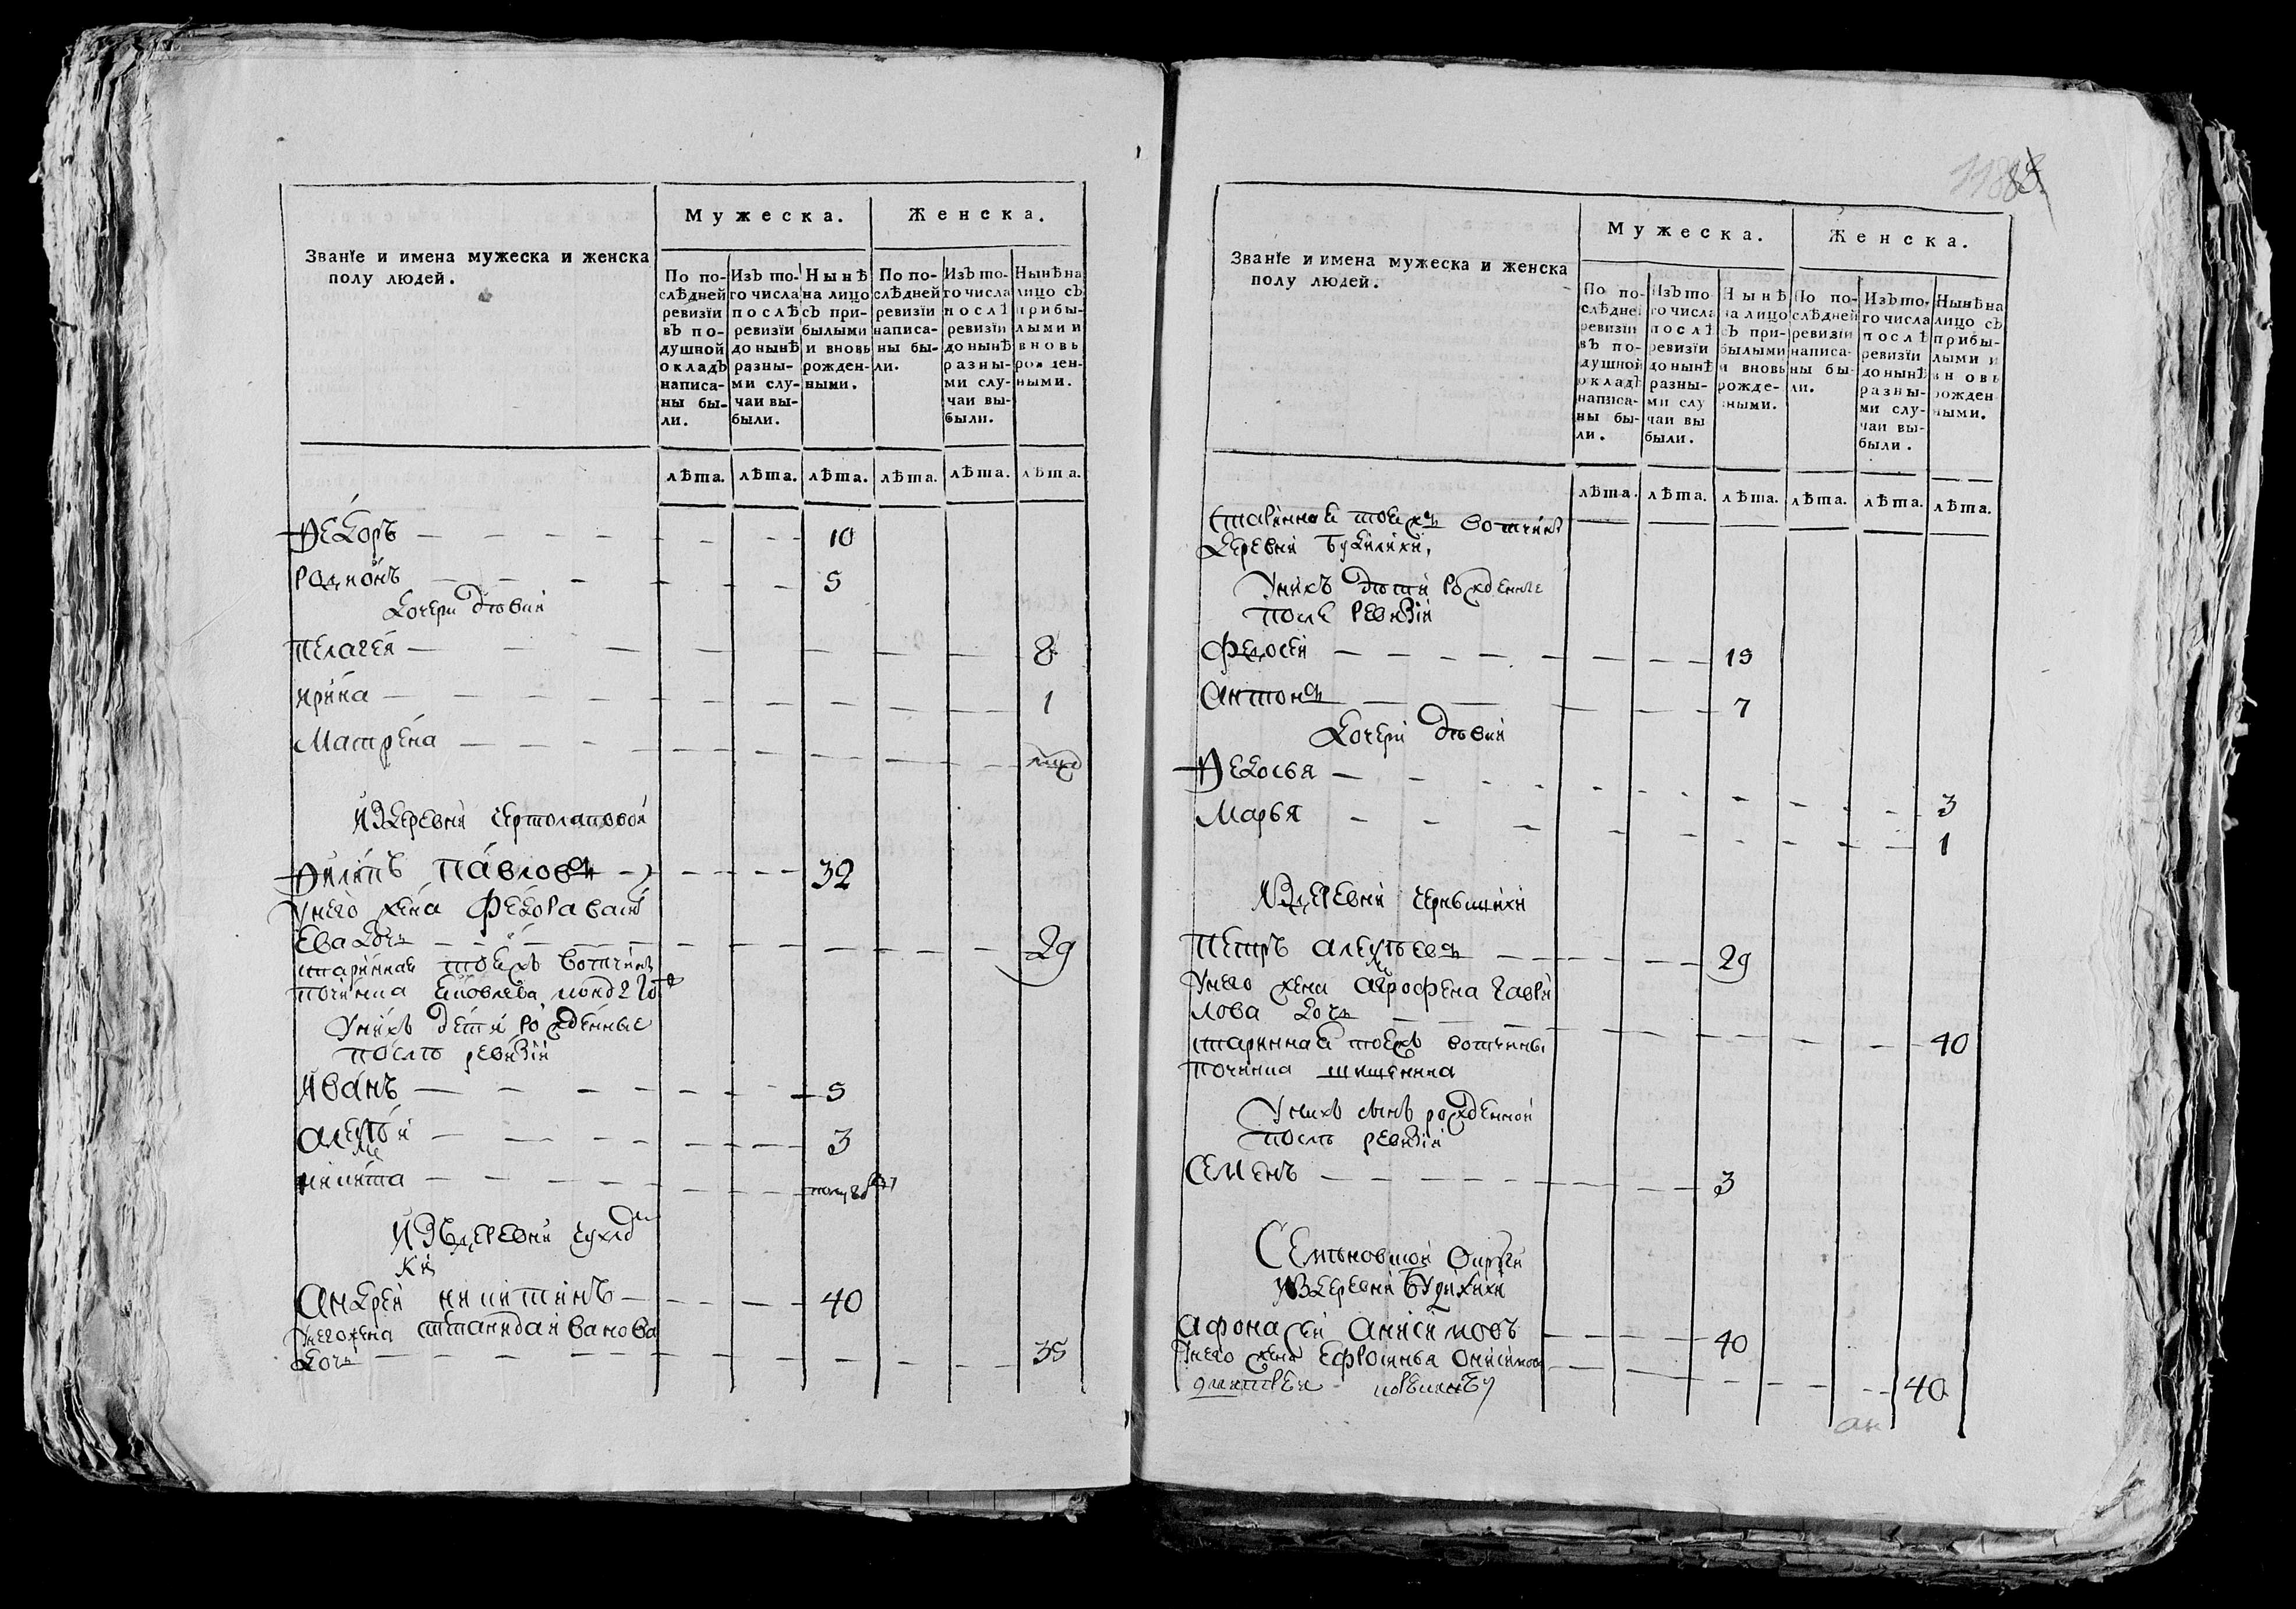 Мужеска.
Женска.
Званїе и имена мужеска и женска
полу людей.
По по-
слѣдней
ревизїи
въ по-
душной
окладъ
написа-
ны бы-
ли.
Изъ то-
го числа
послѣ
ревизїи
до нынѣ
разны-
ми слу-
чаи вы-
были.
Нынѣ
на лицо
съ при-
былыми
и вновь
рожден-
ными.
По по-
слѣдней
ревизїи
написа-
ны бы-
ли.
Изъ то-
го числа
послѣ
ревизїи
до нынѣ
разны-
ми слу-
чаи вы-
были.
Нынѣ на
лицо съ
прибы-
лыми и
вновь
рожден-
ными.
лѣта. лѣта. лѣта. лѣта. лѣта. лѣта.
Ѳедоръ 10
Родионъ 5
дочери девки
Пелагея 8
Ирина 1
Матрена
из деревни чертолаповой
Ѳилипъ Павловъ 32
у него жена Федора васи
ева дочь 29
старинная тоежъ вотчины
починка
у нихъ дети рожденные
после ревизии
Иванъ 5
Алексей 3
Никита полугоду
Изъ деревни
ки
Андрей Никитинъ 40
у него жена Степанида Иванова
дочь 35
Мужеска.
Женска.
Званїе и имена мужеска и женска
полу людей.
По по-
слѣдней
ревизїи
въ по-
душной
окладъ
написа-
ны бы-
ли.
Изъ то
го числа
послѣ
ревизїи
до нынѣ
разны-
ми слу
чаи вы
были.
Нынѣ
на лицо
съ при-
былыми
и вновь
рожде-
нными.
По по-
слѣдней
ревизїи
написа-
ны бы-
ли.
Изъ то-
го числа
послѣ
ревизїи
до нынѣ
разны-
ми слу-
чаи вы-
были.
Нынѣ на
лицо съ
прибы-
лыми и
вновь
рожден
ными.
лѣта. лѣта. лѣта. лѣта. лѣта. лѣта.
старинная тоежъ вотчины
деревни
у нихъ дети рожденные
после ревизии
Федосей 19
Антонъ 7
дочери девки
Ѳедосья 3
Марья 1
Из деревни
Петръ Алексеевъ 29
у него жена Агрофена Гаври
лова дочь 40
старинная тоежъ вотчины
починка
у нихъ сынъ рожденной
после ревизии
Семенъ 3
Семеновской округи
из деревни
Афонасей Анисимовъ 40
у него жена Ефросинья Онисимова 40